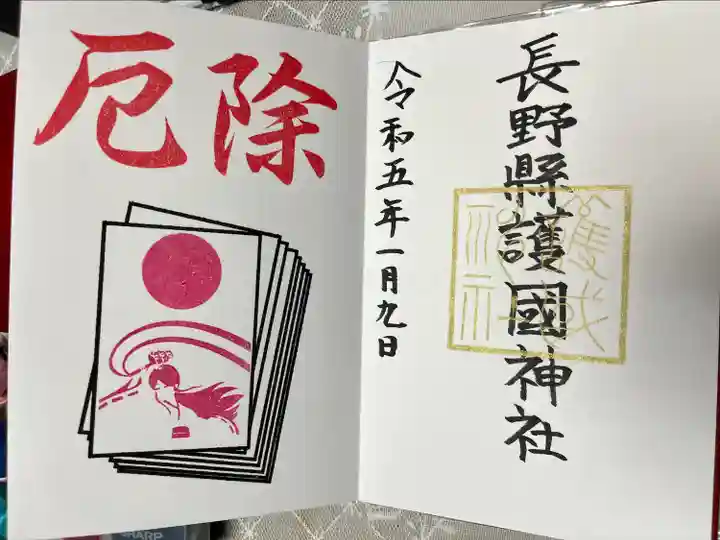 長野縣護國神社
令和五年一月九日
厄除
SHARP